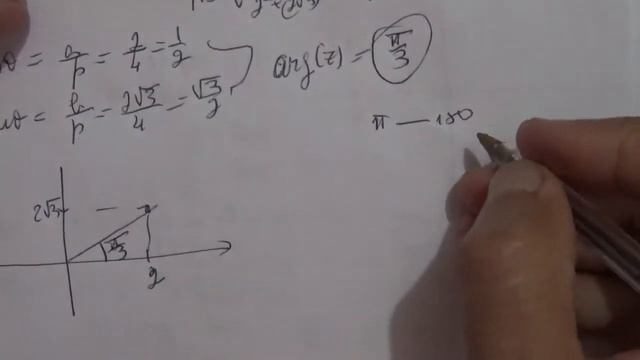 θ = a/ρ = 2/4 = 1/2
θ = b/ρ = 2√3/4 = √3/2
arg(z) = π/3
π — 180
2√3
π/3
2